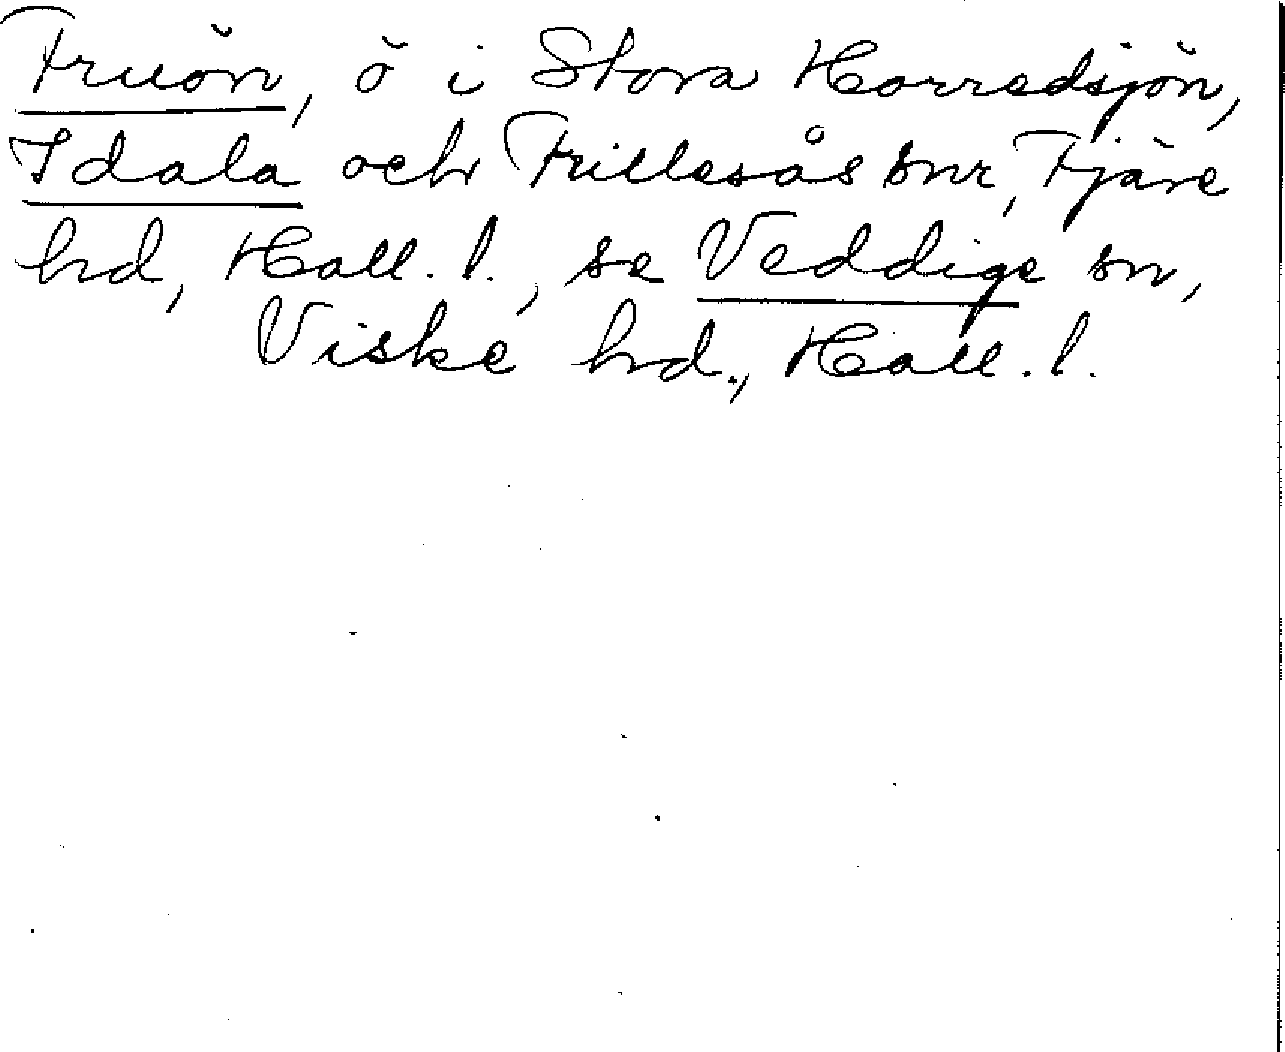 Fruön, ö i Stora Horredsjön,
Idala och Frillesås snr, Fjäre
hd, Hall. l., se Veddige sn,
Viske hd., Hall. l.